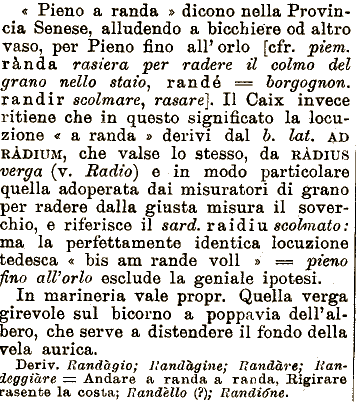 « Pieno a randa » dicono nella Provin-
cia Senese, alludendo a bicchiere od altro
vaso, per Pieno fino all' orlo [cfr. piem.
rànda rasiera per radere il colmo del
grano nello staio, randé = borgognon.
randir scolmare, rasare]. Il Caix invece
ritiene che in questo significato la locu-
zione « a randa » derivi dal b. lat. AD
RÀDIUM, che valse lo stesso, da RÀDIUS
verga (v. Radio) e in modo particolare
quella adoperata dai misuratori di grano
per radere dalla giusta misura il sover-
chio, e riferisce il sard. raidiu scolmato:
ma la perfettamente identica locuzione
tedesca « bis am rande voll » = pieno
fino all'orlo esclude la geniale ipotesi.
In marineria vale propr. Quella verga
girevole sul bicorno a poppavia dell'al-
bero, che serve a distendere il fondo della
vela aurica.
Deriv. Randàgio; Randàgine; Randàre; Ran-
deggiàre = Andare a randa a randa, Rigirare
rasente la costa; Randèllo (?); Randióne.